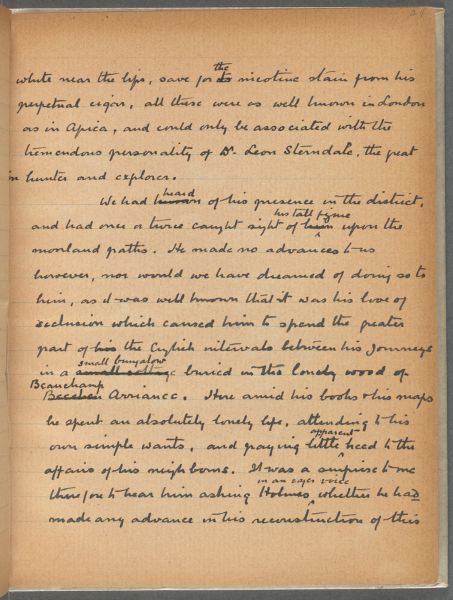 24
white near the lips, save for the its nicotine stain from his
perpetual cigar, all these were as well known in London
as in Africa, and could only be associated with the
tremendous personality of Dr. Leon Sterndale, the great
lion hunter and explorer.
We had known heard of his presence in the district,
and had once or twice caught sight of him his tall figure upon the
moorland paths. He made no advances to us
however, nor would we have dreamed of doing so to
him, as it was well known that it was his love of
seclusion which caused him to spend the greater
part of his the English intervals between his journeys
in a small cottage small bungalow buried in the lonely wood of
Beauchamp Arriance. Here amid his books & his maps
he spent an absolutely lonely life, attending to his
own simple wants, and paying little apparent heed to the
affairs of his neighbours. It was a surprise to me
therefore to hear him asking Holmes in an eager voice whether he had
made any advance in his reconstruction of this